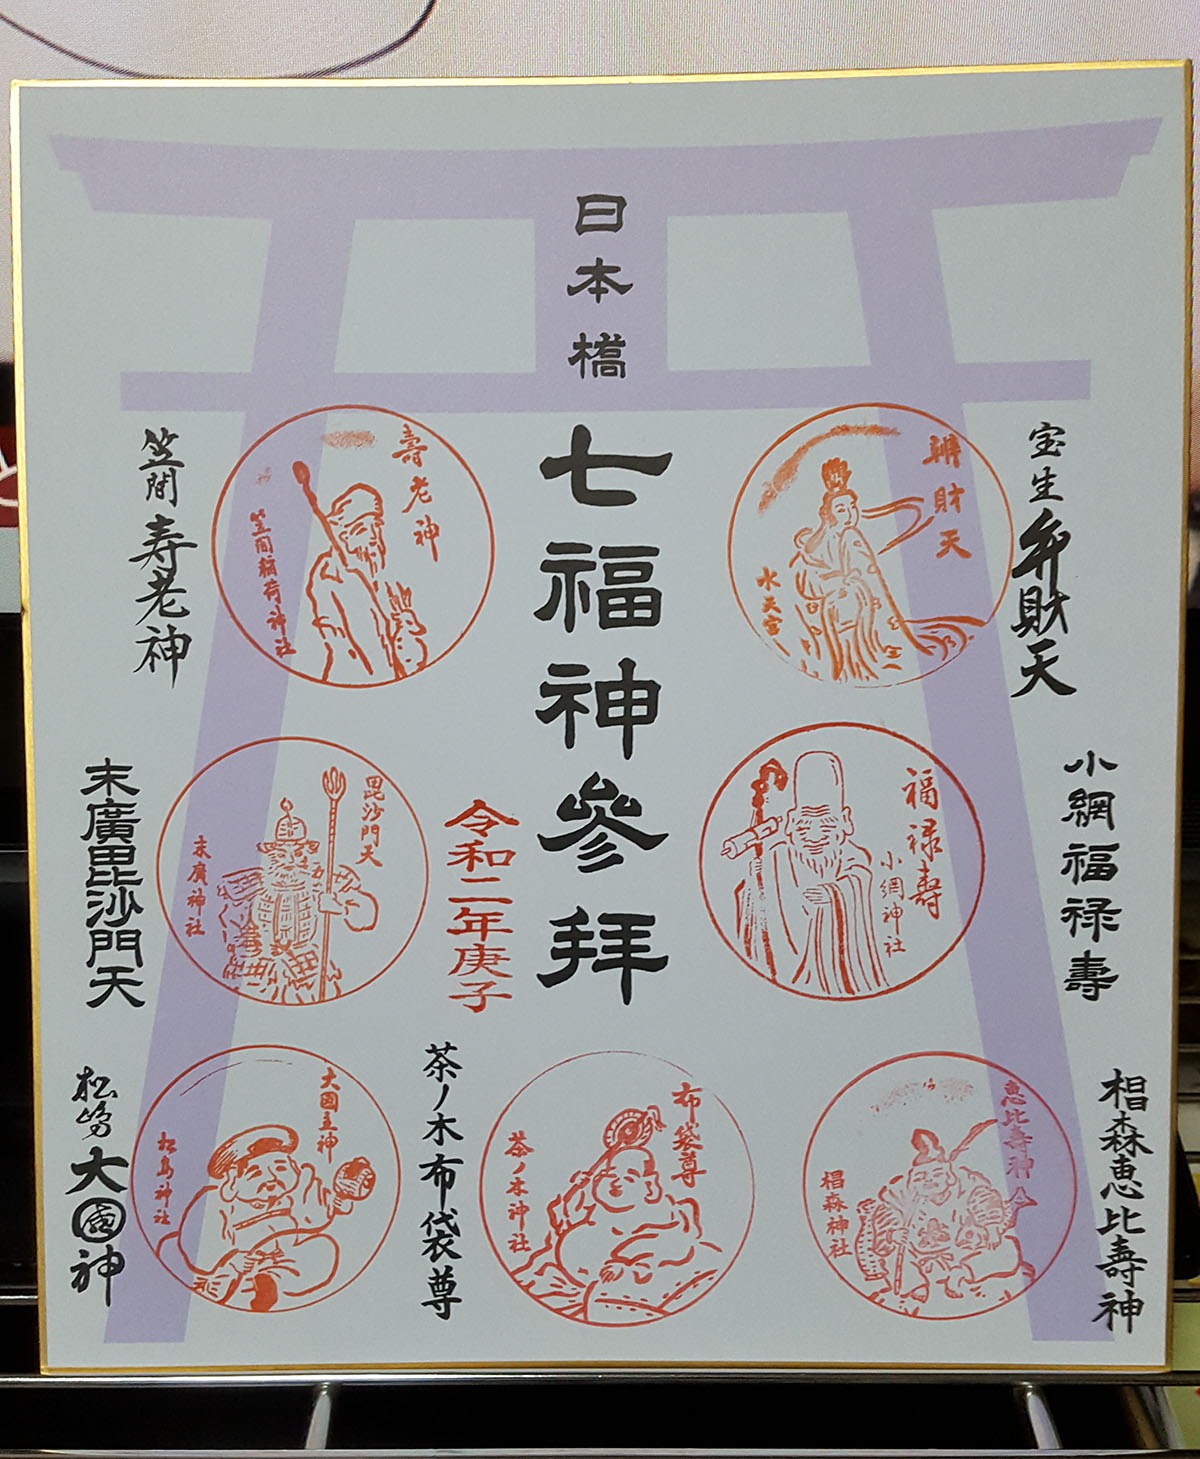 日本橋
七福神參拜
令和二年庚子
宝生弁財天
辨財天
水天宮
小網福禄壽
福禄壽
小網神社
椙森恵比壽神
恵比壽神
椙森神社
茶ノ木布袋尊
布袋尊
茶ノ木神社
笠間寿老神
壽老神
笠間稲荷神社
末廣毘沙門天
毘沙門天
末廣神社
松嶋大國神
大國主神
松島神社